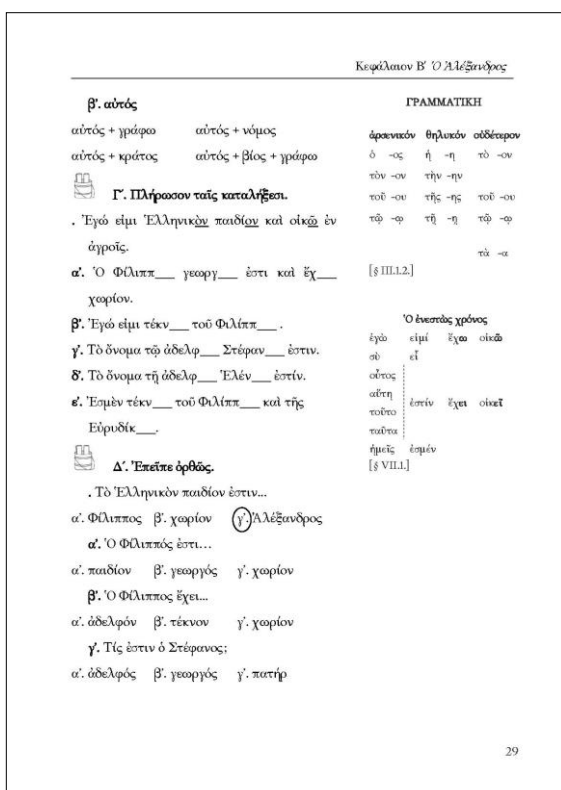 Κεφάλαιον Β′ Ὁ Ἀλέξανδρος
β′. αὐτός
αὐτός + γράφω αὐτός + νόμος
αὐτός + κράτος αὐτός + βίος + γράφω
Γ′. Πλήρωσον ταῖς καταλήξεσι.
. Ἐγώ εἰμι Ἑλληνικὸν παιδίον καὶ οἰκῶ ἐν
ἀγροῖς.
α′. Ὁ Φίλιππ___ γεωργ___ ἐστι καὶ ἔχ___
χωρίον.
β′. Ἐγώ εἰμι τέκν___ τοῦ Φιλίππ___ .
γ′. Τὸ ὄνομα τῷ ἀδελφ___ Στέφαν___ ἐστιν.
δ′. Τὸ ὄνομα τῇ ἀδελφ___ Ἑλέν___ ἐστίν.
ε′. Ἐσμὲν τέκν___ τοῦ Φιλίππ___ καὶ τῆς
Εὐρυδίκ___.
Δ′. Ἐπεῖπε ὀρθῶς.
. Τὸ Ἑλληνικὸν παιδίον ἐστιν...
α′. Φίλιππος β′. χωρίον γ′. Ἀλέξανδρος
α′. Ὁ Φίλιππός ἐστι…
α′. παιδίον β′. γεωργός γ′. χωρίον
β′. Ὁ Φίλιππος ἔχει...
α′. ἀδελφόν β′. τέκνον γ′. χωρίον
γ′. Τίς ἐστιν ὁ Στέφανος;
α′. ἀδελφός β′. γεωργός γ′. πατήρ
ΓΡΑΜΜΑΤΙΚΗ
ἀρσενικόν θηλυκόν οὐδέτερον
ὁ -ος ἡ -η τὸ -ον
τὸν -ον τὴν -ην
τοῦ -ου τῆς -ης τοῦ -ου
τῷ -ῳ τῇ -ῃ τῷ -ῳ
τὰ -α
[§ III.1.2.]
Ὁ ἐνεστὼς χρόνος
ἐγὼ εἰμί ἔχω οἰκῶ
σὺ εἶ
οὗτος
αὕτη
τοῦτο ἐστίν ἔχει οἰκεῖ
ταῦτα
ἡμεῖς ἐσμέν
[§ VII.1.]
29